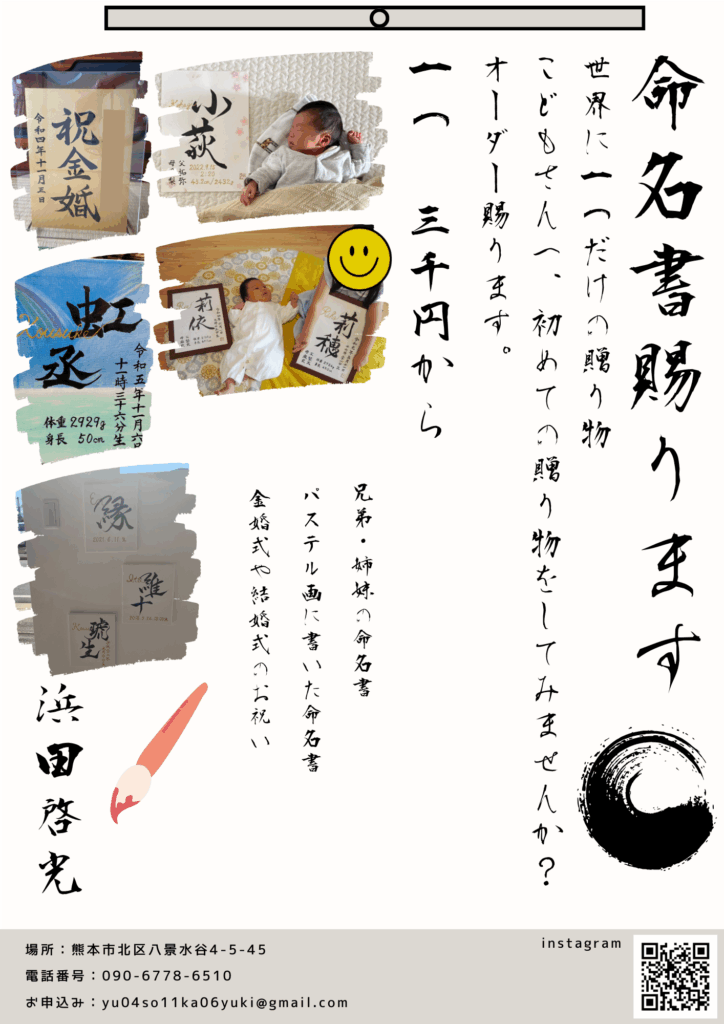 命名書賜ります
世界に一つだけの贈り物
こどもさんへ、初めての贈り物をしてみませんか？
オーダー賜ります。
一つ 三千円から
兄弟・姉妹の命名書
パステル画に書いた命名書
金婚式や結婚式のお祝い
小萩
祝金婚
令和四年十一月三日
莉依
莉穂
虹丞
令和五年十一月六日
十一時三十六分生
体重 2929g
身長 50cm
縁
維千
琥生
浜田啓光
場所：熊本市北区八景水谷4-5-45
電話番号：090-6778-6510
お申込み：yu04so11ka06yuki@gmail.com
instagram